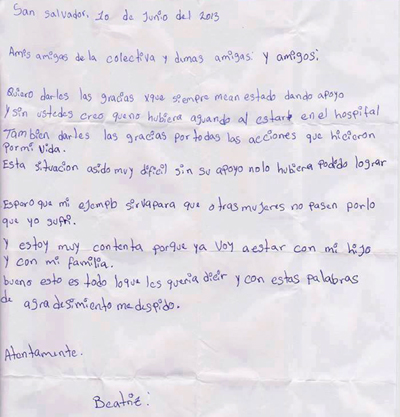 San Salvador, 10 de Junio del 2013
Amis amigas de la colectiva y dumas amigas y amigos:
Quiero darles las gracias xque siempre mean estado dando apoyo
y sin ustedes creo queno hubiera aguando al estar en el hospital
Tambien darles las gracias por todas las acciones que hicieron
por mi vida.
Esta situacion asido muy dificil sin su apoyo nolo hubiera podido lograr
Esporo que mi ejemplo sirvapara que otras mujeres no pasen porlo
que yo sufri.
Y estoy muy contenta porque ya voy aestar con mi hijo
y con mi familia.
bueno esto es todo loque les queria dicir y con estas palabras
de agradesimiento me despido.
Atontamente.
Beatriz: